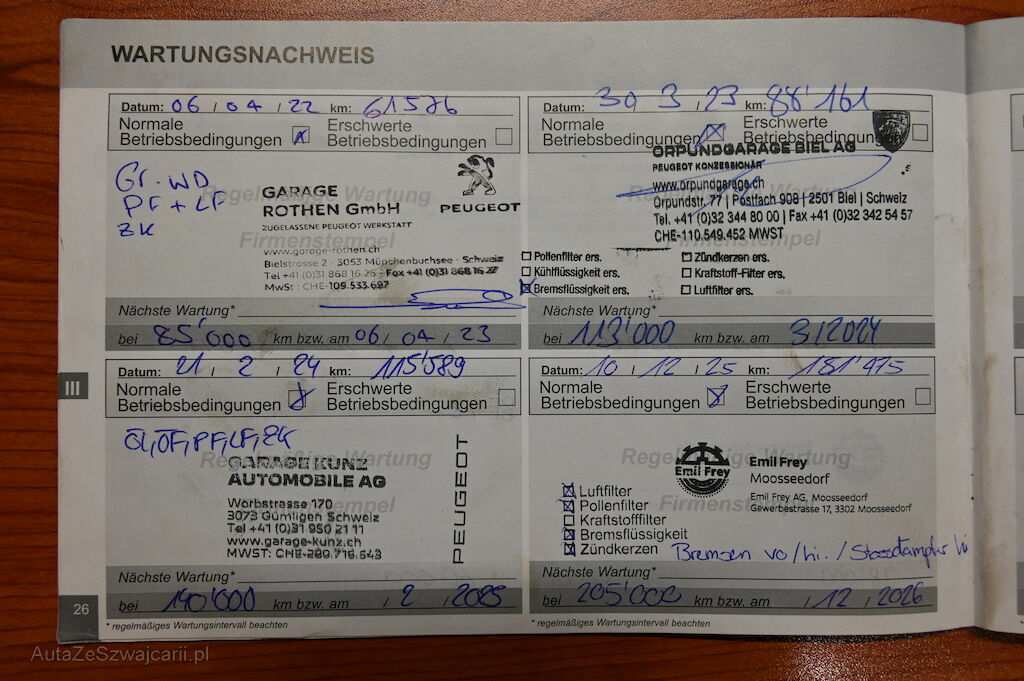 WARTUNGSNACHWEIS
Datum: 06 / 04 / 22 km: 61576
Normale Betriebsbedingungen
Erschwerte Betriebsbedingungen
Gr. WD
PF + LF
ZK
Regelmäßige Wartung
Firmenstempel
GARAGE
ROTHEN GmbH
ZUGELASSENE PEUGEOT WERKSTATT
PEUGEOT
www.garage-rothen.ch
Bielstrasse 2 - 3053 Münchenbuchsee - Schweiz
Tel +41 (0)31 868 16 26 - Fax +41 (0)31 868 16 27
MwSt : CHE-109.533.697
Nächste Wartung*
bei 85'000 km bzw. am 06 / 04 / 23
Datum: 30 3 / 23 km: 88'161
Normale Betriebsbedingungen
Erschwerte Betriebsbedingungen
ORPUNDGARAGE BIEL AG
PEUGEOT KONZESSIONÄR
www.orpundgarage.ch
Orpundstr. 77 | Postfach 908 | 2501 Biel | Schweiz
Tel. +41 (0)32 344 80 00 | Fax +41 (0)32 342 54 57
CHE-110.549.452 MWST
Firmenstempel
Pollenfilter ers.
Kühlflüssigkeit ers.
Bremsflüssigkeit ers.
Zündkerzen ers.
Kraftstoff-Filter ers.
Luftfilter ers.
Nächste Wartung*
bei 113'000 km bzw. am 3/2024
III
Datum: 21 / 2 / 24 km: 115'589
Normale Betriebsbedingungen
Erschwerte Betriebsbedingungen
Öl, ÖF, PF, LF, ZK
Regelmäßige Wartung
GARAGE KUNZ
AUTOMOBILE AG
Worbstrasse 170
3073 Gümligen Schweiz
Tel +41 (0)31 950 21 11
www.garage-kunz.ch
MWST: CHE-289.716.543
PEUGEOT
Nächste Wartung*
bei 140'000 km bzw. am / 2 / 2025
Datum: 10 / 12 / 25 km: 181'475
Normale Betriebsbedingungen
Erschwerte Betriebsbedingungen
Regelmäßige Wartung
Firmenstempel
Emil Frey
Emil Frey
Moosseedorf
Emil Frey AG, Moosseedorf
Gewerbestrasse 17, 3302 Moosseedorf
Luftfilter
Pollenfilter
Kraftstofffilter
Bremsflüssigkeit
Zündkerzen
Bremsen vo/hi. / Stossdämpfer hi
Nächste Wartung*
bei 205'000 km bzw. am / 12 / 2026
26
* regelmäßiges Wartungsintervall beachten
* regelmäßiges Wartungsintervall beachten
AutaZeSzwajcarii.pl